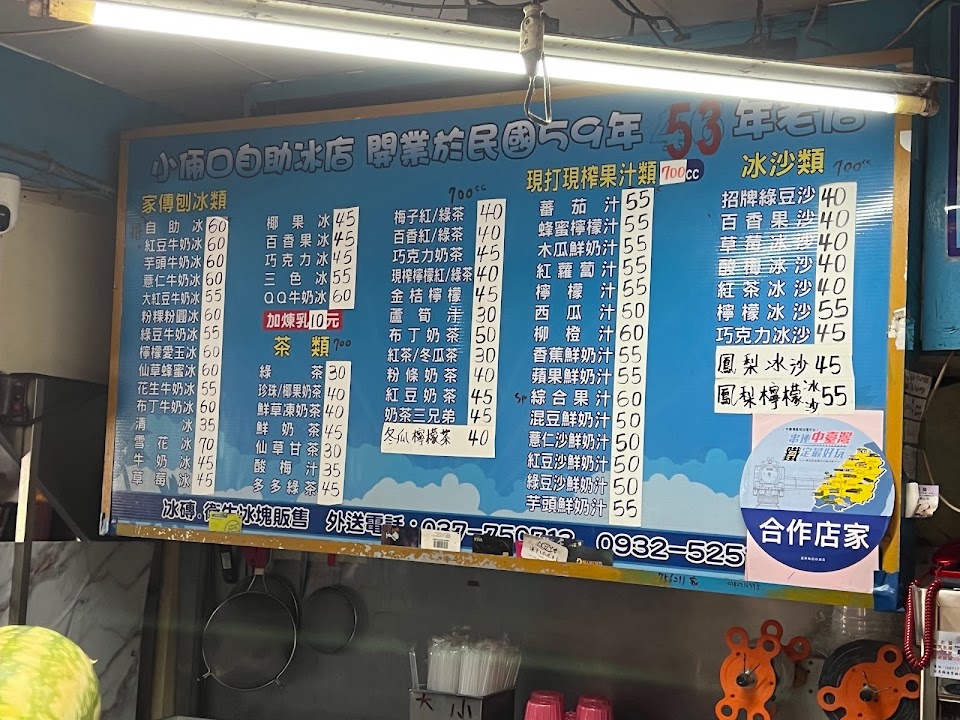 小南口自助冰店 開業於民國59年 53年老店
家傳刨冰類
自助冰 60
紅豆牛奶冰 60
芋頭牛奶冰 60
薏仁牛奶冰 60
大紅豆牛奶冰 55
粉粿粉圓冰 60
綠豆牛奶冰 55
檸檬愛玉冰 60
仙草蜂蜜冰 60
花生牛奶冰 55
布丁牛奶冰 60
清冰 35
雪花冰 70
牛奶冰 45
草莓冰 45
椰果冰 45
百香果冰 45
巧克力冰 45
三色冰 55
QQ牛奶冰 60
加煉乳10元
茶類 700
綠茶 30
珍珠/椰果奶茶 40
鮮草凍奶茶 40
鮮奶茶 45
仙草甘茶 30
酸梅汁 35
多多綠茶 45
700cc
梅子紅/綠茶 40
百香紅/綠茶 40
巧克力奶茶 45
現榨檸檬紅/綠茶 40
金桔檸檬 45
蘆筍汁 30
布丁奶茶 50
紅茶/冬瓜茶 30
粉條奶茶 40
紅豆奶茶 45
奶茶三兄弟 45
冬瓜檸檬茶 40
現打現榨果汁類 700cc
蕃茄汁 55
蜂蜜檸檬汁 55
木瓜鮮奶汁 55
紅蘿蔔汁 55
檸檬汁 55
西瓜汁 50
柳橙汁 60
香蕉鮮奶汁 55
蘋果鮮奶汁 55
綜合果汁 60
混豆鮮奶汁 50
薏仁沙鮮奶汁 50
紅豆沙鮮奶汁 50
綠豆沙鮮奶汁 50
芋頭鮮奶汁 55
冰沙類 700cc
招牌綠豆沙 40
百香果冰沙 40
草莓冰沙 40
酸梅冰沙 40
紅茶冰沙 40
檸檬冰沙 55
巧克力冰沙 45
鳳梨冰沙 45
鳳梨檸檬冰沙 55
串連中臺灣
鐵定最好玩
合作店家
冰磚.衛生冰塊販售 外送電話:037-750713 0932-525
大 小